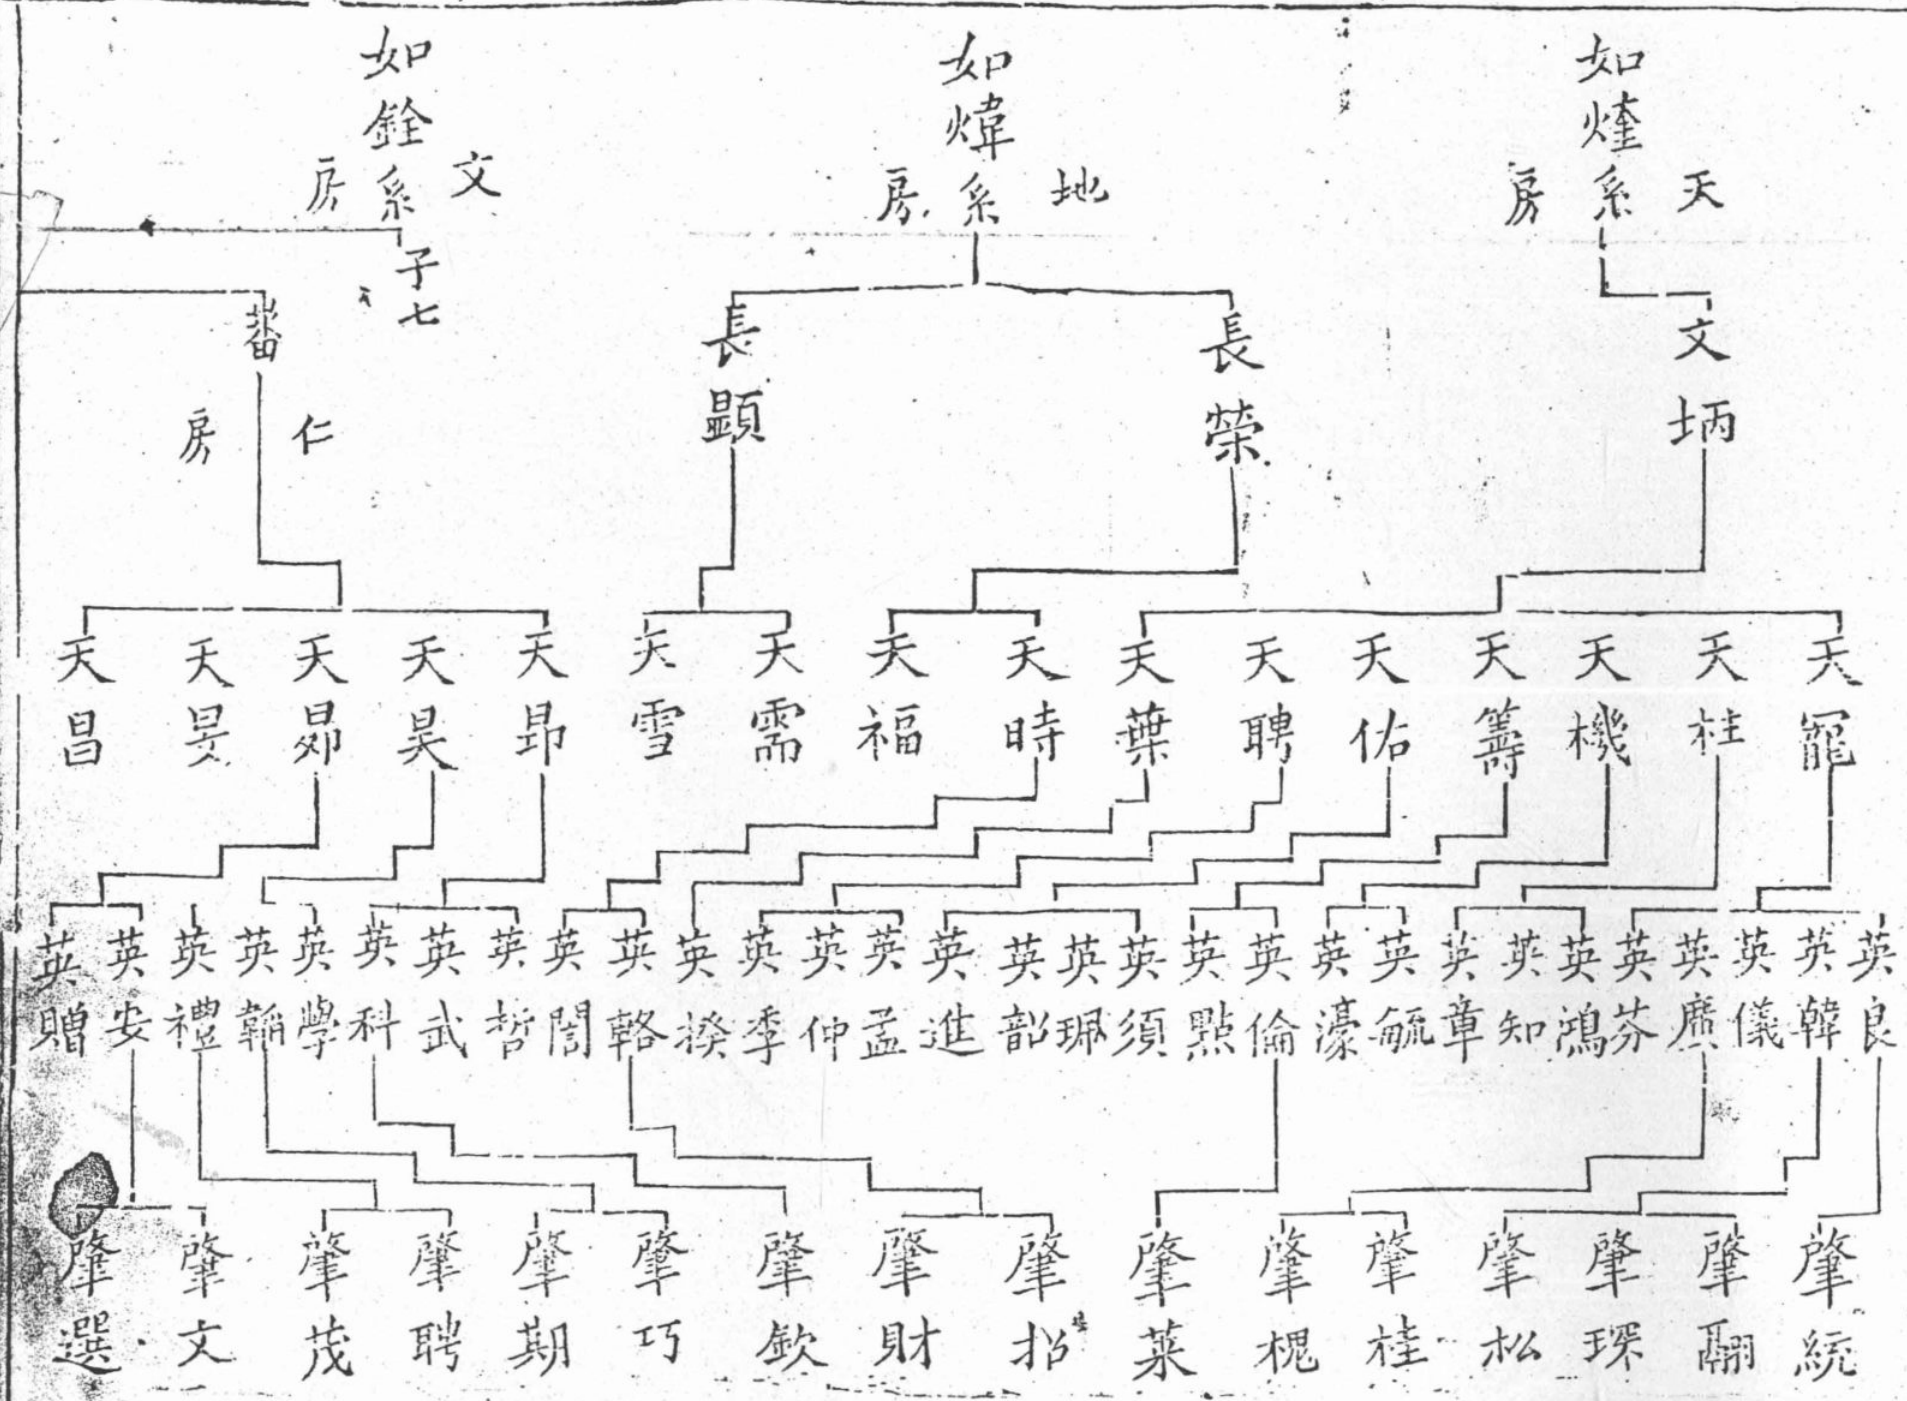 如煃系
天房
如煒系
地房
如銓系
文房
子七
文昞
長榮
長顕
蕃
仁房
天寵
天柱
天機
天籌
天佑
天聘
天葉
天時
天福
天需
天雪
天昂
天昊
天昴
天旻
天昌
英良
英韓
英儀
英廣
英芬
英鴻
英知
英章
英毓
英濠
英倫
英點
英須
英珮
英韶
英進
英孟
英仲
英季
英揆
英輅
英誾
英哲
英武
英科
英學
英
英禮
英安
英贈
肇統
肇翮
肇琛
肇松
肇桂
肇槐
肇萊
肇招
肇財
肇欽
肇巧
肇期
肇聘
肇茂
肇文
肇選